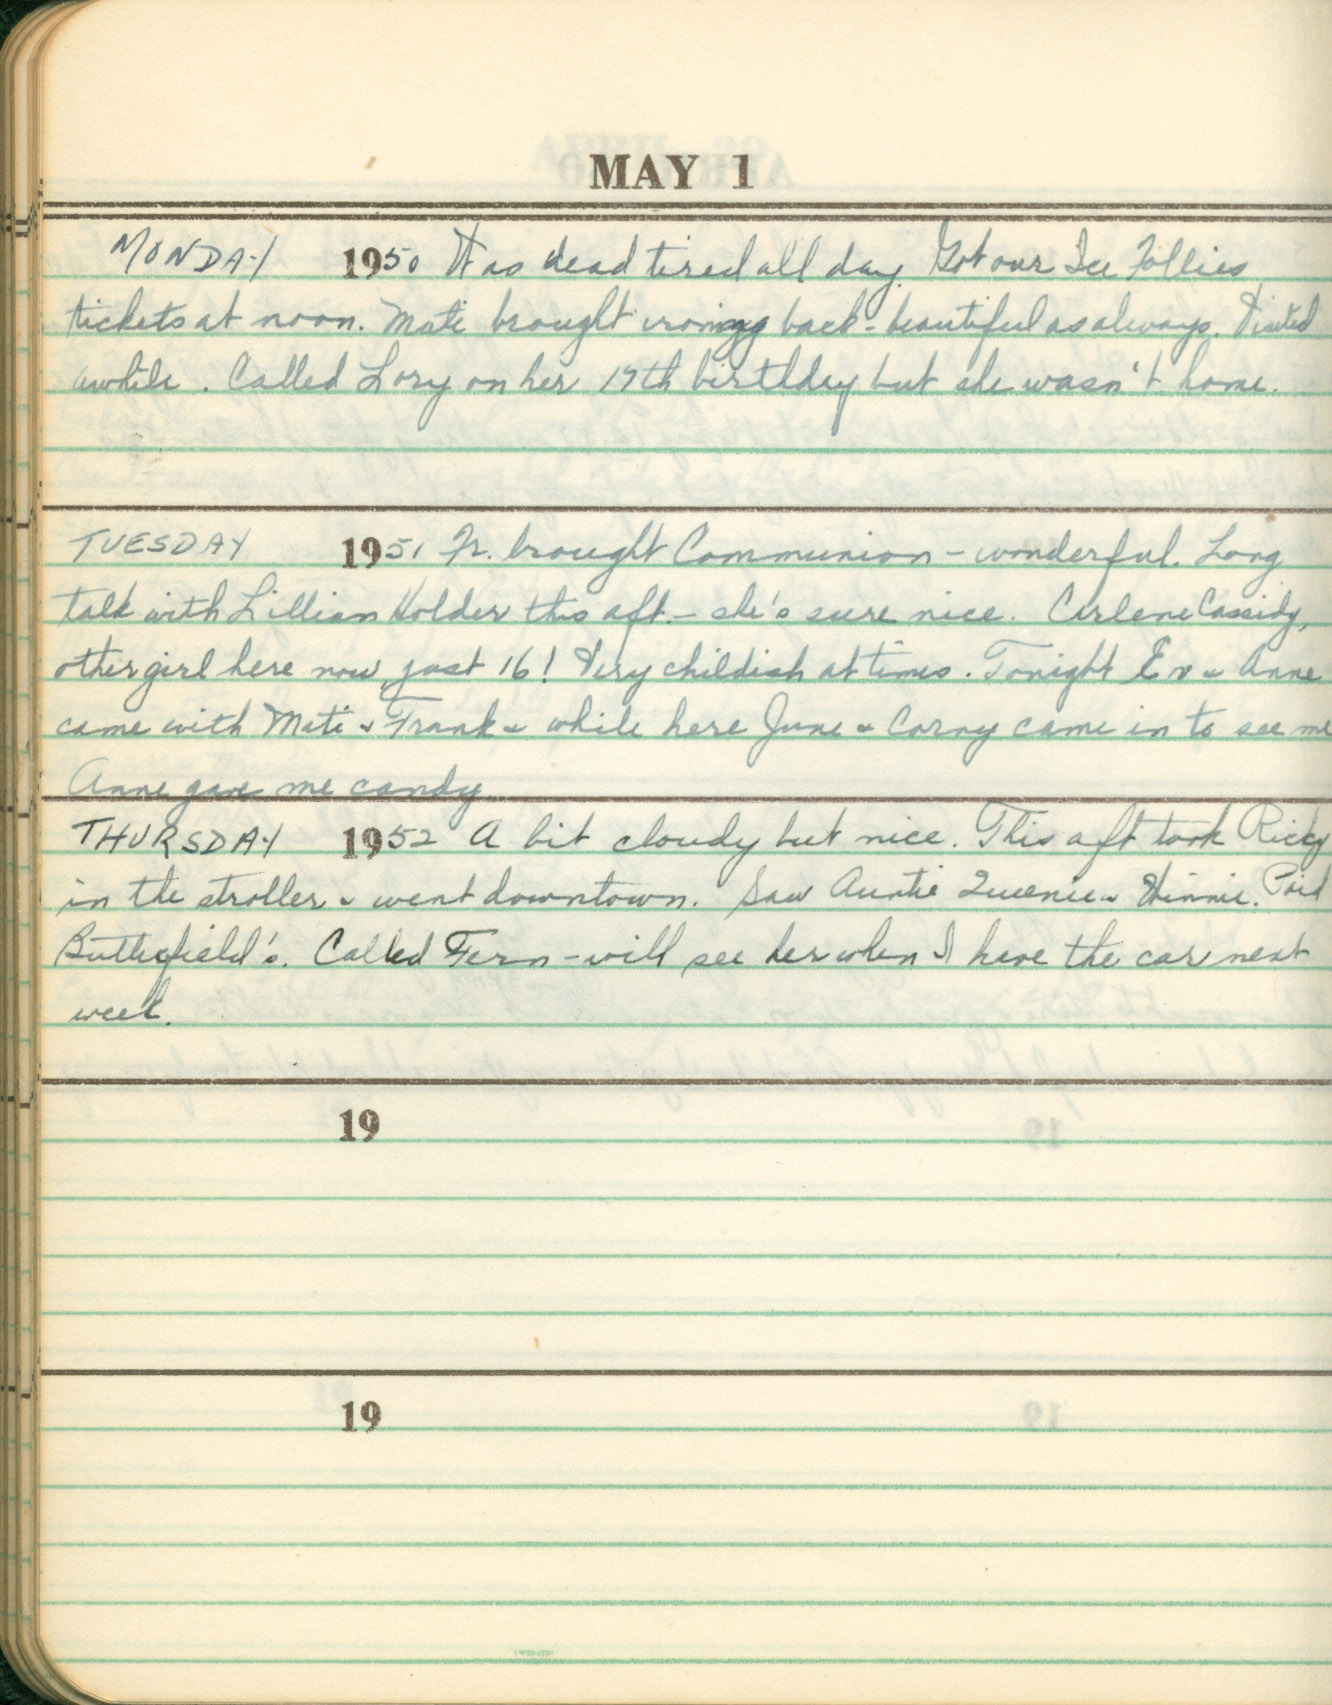 MAY 1
MONDAY 1950 Was dead tired all day. Got our Ice Follies
tickets at noon. Mati brought ironing back - beautiful as always. Visited
awhile. Called Lory on her 19th birthday but she wasn't home.
TUESDAY 1951 Fr. brought Communion - wonderful. Long
talk with Lillian Holder this aft. - she's sure nice. Carlene Cassidy,
other girl here now, just 16! Very childish at times. Tonight Ev & Anne
came with Mati & Frank & while here June & Corny came in to see me
Anne gave me candy.
THURSDAY 1952 A bit cloudy but nice. This aft took Ricky
in the stroller & went downtown. Saw Auntie Queenie & Winnie. Paid
Butterfield's. Called Fern - will see her when I have the car next
week.
19
19